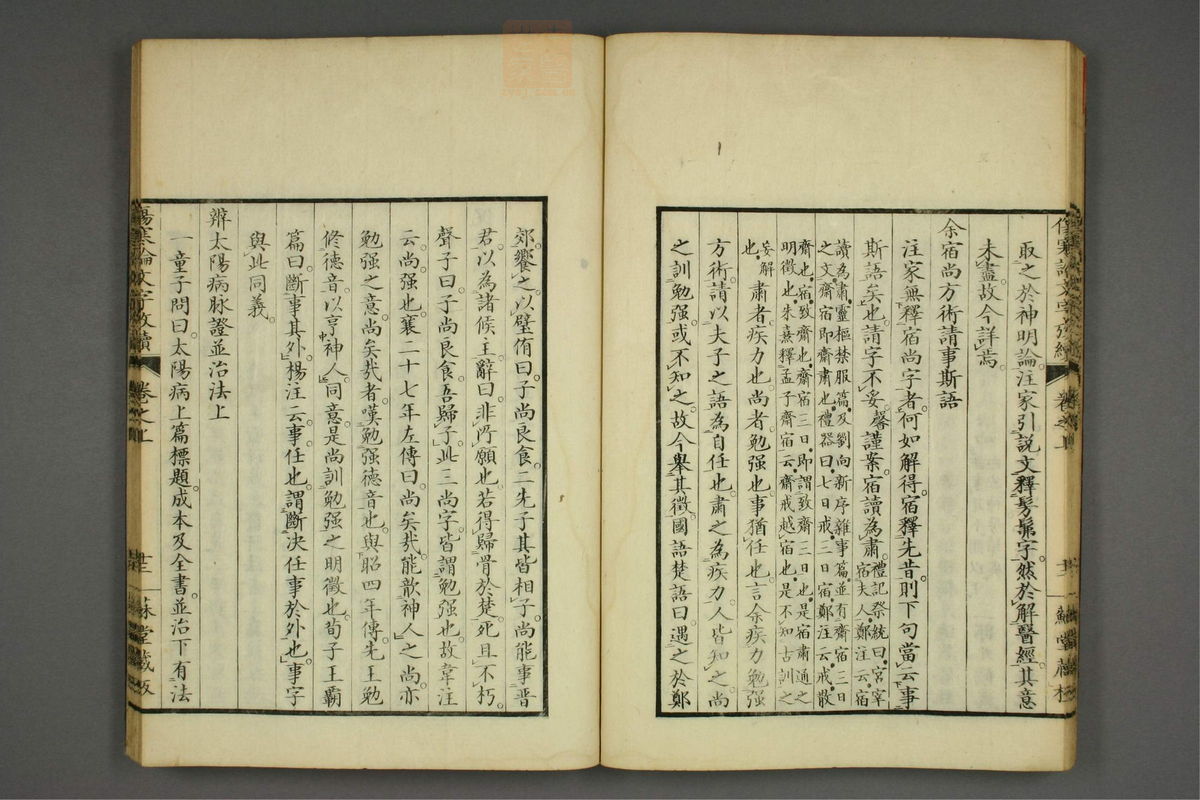 取之於神明論注家引説文釋髣髴字然於解醫經其意
未盡故今詳焉
余宿尚方術請事斯語
注家無釋宿尚字者何如解得宿釋先昔則下句當云事
斯語矣也請字不妥馨謹案宿讀為肅禮記祭統曰宮宰宿夫人鄭注云宿
讀為肅靈樞禁服篇及劉向新序雜事篇並有齋宿三日
之文齋宿即齋肅也禮器曰七日戒三日宿鄭注云戒散
齋也宿致齋也齋宿三日即謂致齋三日也是宿肅通之
明徵也朱熹釋孟子齋宿云齋戒越宿也是不知古訓之
妄解也
肅者疾力也尚者勉强也事猶任也言余疾力勉强
方術請以夫子之語為自任也肅之為疾力人皆知之尚
之訓勉强或不知之故今舉其徵國語楚語曰遇之於鄭
郊饗之以璧侑曰子尚良食二先子其皆相子尚能事晋
君以為諸候主辭曰非所願也若得歸骨於楚死且不朽
聲子曰子尚良食吾歸子此三尚字皆謂勉强也故韋注
云尚强也襄二十七年左傳曰尚矣哉能歆神人之尚亦
勉强之意尚矣哉者嘆勉强德音也與昭四年傳先王勉
修德音以亨神人同意是尚訓勉强之明徵也荀子王霸
篇曰斷事其外楊注云事任也謂斷決任事於外也事字
與此同義
辨太陽病脉證並治法上
一童子問曰太陽病上篇標題成本及全書並治下有法
傷寒論文字攷續
卷之上